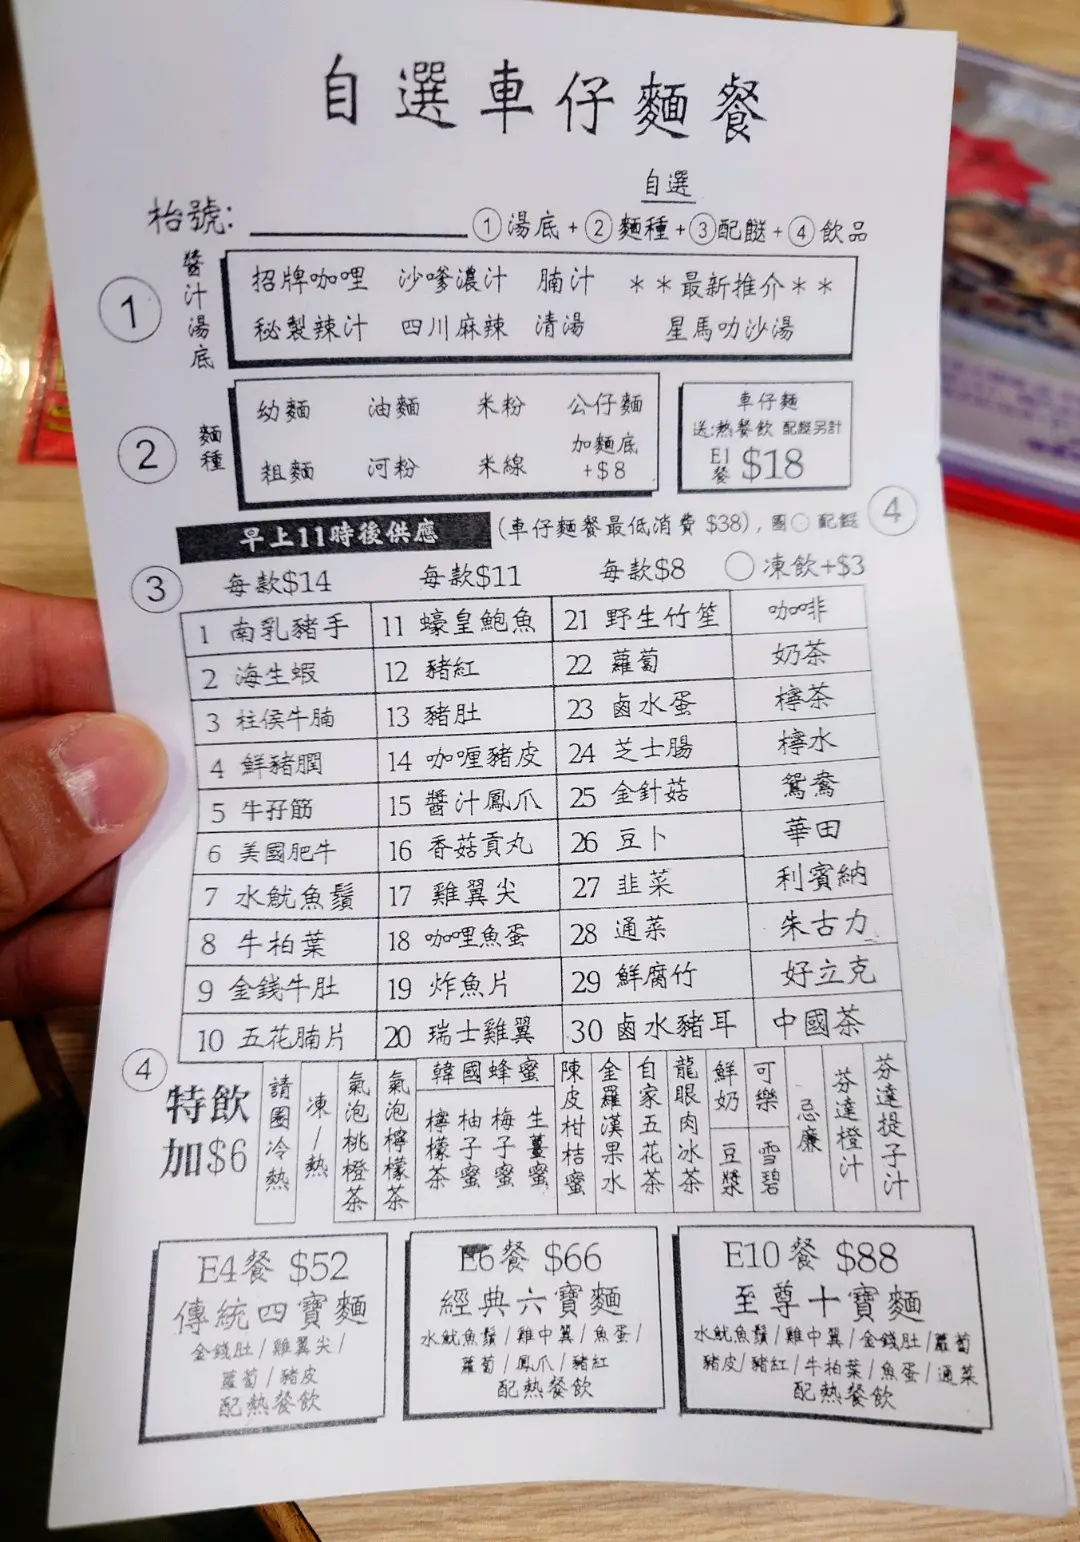 自選車仔麵餐
枱號:
自選
①湯底+②麵種+③配餸+④飲品
①
醬汁湯底
招牌咖哩 沙嗲濃汁 腩汁 **最新推介**
秘製辣汁 四川麻辣 清湯 星馬叻沙湯
②
麵種
幼麵 油麵 米粉 公仔麵
粗麵 河粉 米線 加麵底+$8
車仔麵
送:熱餐飲 配餸另計
E1餐 $18
早上11時後供應 (車仔麵餐最低消費 $38), 圈○配餸 ④
③ 每款$14 每款$11 每款$8 ○凍飲+$3
1 南乳豬手 11 蠔皇鮑魚 21 野生竹笙 咖啡
2 海生蝦 12 豬紅 22 蘿蔔 奶茶
3 柱侯牛腩 13 豬肚 23 鹵水蛋 檸茶
4 鮮豬膶 14 咖喱豬皮 24 芝士腸 檸水
5 牛孖筋 15 醬汁鳳爪 25 金針菇 鴛鴦
6 美國肥牛 16 香菇貢丸 26 豆卜 華田
7 水魷魚鬚 17 雞翼尖 27 韭菜 利賓納
8 牛柏葉 18 咖哩魚蛋 28 通菜 朱古力
9 金錢牛肚 19 炸魚片 29 鮮腐竹 好立克
10 五花腩片 20 瑞士雞翼 30 鹵水豬耳 中國茶
④
特飲
加$6
請圈冷熱
凍/熱
氣泡桃橙茶
氣泡檸檬茶
韓國蜂蜜
檸檬茶
柚子蜜
梅子蜜
生薑蜜
陳皮柑桔蜜
金羅漢果水
自家五花茶
龍眼肉冰茶
鮮奶
豆漿
可樂
雪碧
忌廉
芬達橙汁
芬達提子汁
E4餐 $52
傳統四寶麵
金錢肚/雞翼尖/
蘿蔔/豬皮
配熱餐飲
E6餐 $66
經典六寶麵
水魷魚鬚/雞中翼/魚蛋/
蘿蔔/鳳爪/豬紅
配熱餐飲
E10餐 $88
至尊十寶麵
水魷魚鬚/雞中翼/金錢肚/蘿蔔
豬皮/豬紅/牛柏葉/魚蛋/通菜
配熱餐飲